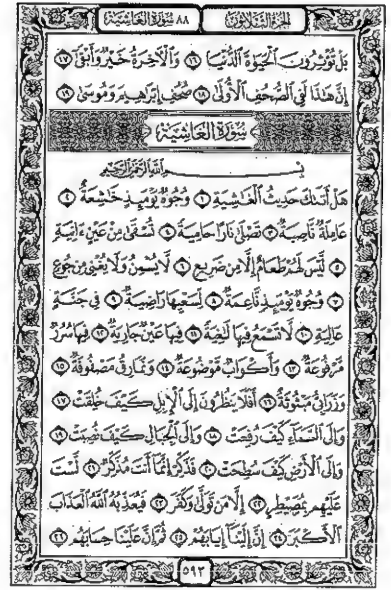 الجزء الثلاثون ٨٨ سورة الغاشية
بَلْ تُؤْثِرُونَ الْحَيَوٰةَ الدُّنْيَا ١٦ وَالْآخِرَةُ خَيْرٌ وَأَبْقَىٰ ١٧
إِنَّ هَٰذَا لَفِي الصُّحُفِ الْأُولَىٰ ١٨ صُحُفِ إِبْرَٰهِيمَ وَمُوسَىٰ ١٩
سُورَةُ الْغَاشِيَةِ
بِسْمِ اللَّهِ الرَّحْمَٰنِ الرَّحِيمِ
هَلْ أَتَىٰكَ حَدِيثُ الْغَٰشِيَةِ ١ وُجُوهٌ يَوْمَئِذٍ خَٰشِعَةٌ ٢
عَامِلَةٌ نَّاصِبَةٌ ٣ تَصْلَىٰ نَارًا حَامِيَةً ٤ تُسْقَىٰ مِنْ عَيْنٍ ءَانِيَةٍ
٥ لَّيْسَ لَهُمْ طَعَامٌ إِلَّا مِن ضَرِيعٍ ٦ لَّا يُسْمِنُ وَلَا يُغْنِي مِن جُوعٍ
٧ وُجُوهٌ يَوْمَئِذٍ نَّاعِمَةٌ ٨ لِّسَعْيِهَا رَاضِيَةٌ ٩ فِي جَنَّةٍ
عَالِيَةٍ ١٠ لَّا تَسْمَعُ فِيهَا لَٰغِيَةً ١١ فِيهَا عَيْنٌ جَارِيَةٌ ١٢ فِيهَا سُرُرٌ
مَّرْفُوعَةٌ ١٣ وَأَكْوَابٌ مَّوْضُوعَةٌ ١٤ وَنَمَارِقُ مَصْفُوفَةٌ ١٥
وَزَرَابِيُّ مَبْثُوثَةٌ ١٦ أَفَلَا يَنظُرُونَ إِلَى الْإِبِلِ كَيْفَ خُلِقَتْ ١٧
وَإِلَى السَّمَاءِ كَيْفَ رُفِعَتْ ١٨ وَإِلَى الْجِبَالِ كَيْفَ نُصِبَتْ ١٩
وَإِلَى الْأَرْضِ كَيْفَ سُطِحَتْ ٢٠ فَذَكِّرْ إِنَّمَا أَنتَ مُذَكِّرٌ ٢١ لَّسْتَ
عَلَيْهِم بِمُصَيْطِرٍ ٢٢ إِلَّا مَن تَوَلَّىٰ وَكَفَرَ ٢٣ فَيُعَذِّبُهُ اللَّهُ الْعَذَابَ
الْأَكْبَرَ ٢٤ إِنَّ إِلَيْنَا إِيَابَهُمْ ٢٥ ثُمَّ إِنَّ عَلَيْنَا حِسَابَهُم ٢٦
٥٩٢